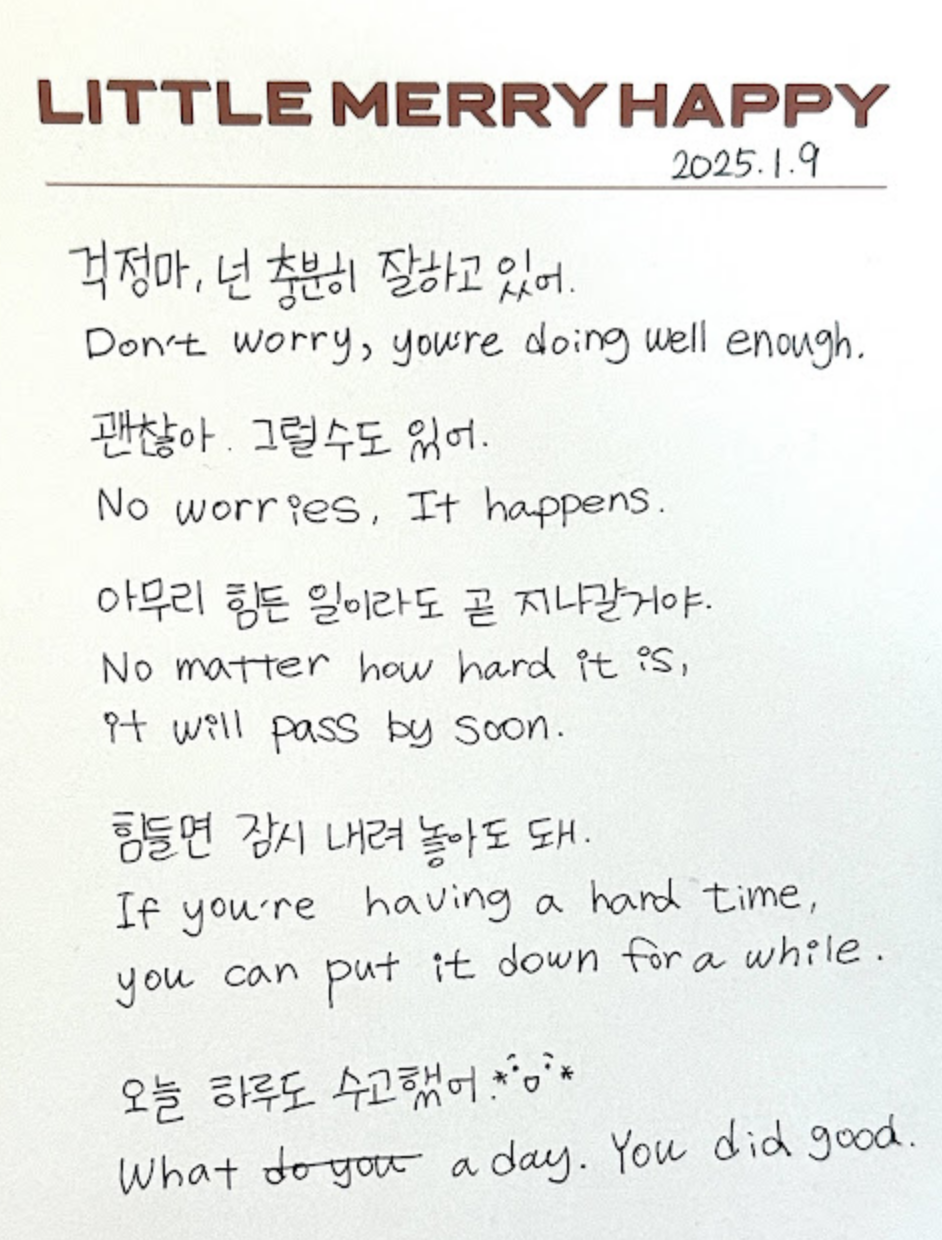 LITTLE MERRY HAPPY
2025.1.9
걱정마, 넌 충분히 잘하고 있어.
Don't worry, you're doing well enough.
괜찮아. 그럴수도 있어.
No worries, It happens.
아무리 힘든 일이라도 곧 지나갈거야.
No matter how hard it is,
it will pass by soon.
힘들면 잠시 내려 놓아도 돼.
If you're having a hard time,
you can put it down for a while.
오늘 하루도 수고했어.*^o^*
What do you a day. You did good.